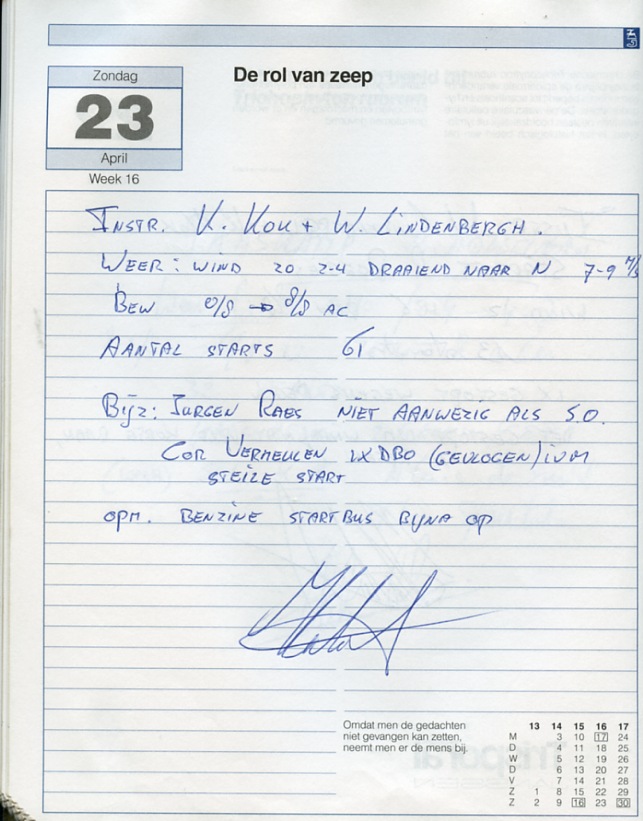 Zondag
23
April
Week 16
De rol van zeep
INSTR. K. KOK + W. LINDENBERGH.
WEER: WIND ZO 2-4 DRAAIEND NAAR N 7-9 M/S
BEW 0/8 → 8/8 AC
AANTAL STARTS 61
BIJZ: JURGEN RAES NIET AANWEZIG ALS S.O.
COR VERMEULEN 1X DBO (GEVLOGEN) IVM
STEILE START
OPM. BENZINE STARTBUS BIJNA OP
Omdat men de gedachten
niet gevangen kan zetten,
neemt men er de mens bij.
13 14 15 16 17
M 3 10 17 24
D 4 11 18 25
W 5 12 19 26
D 6 13 20 27
V 7 14 21 28
Z 1 8 15 22 29
Z 2 9 16 23 30